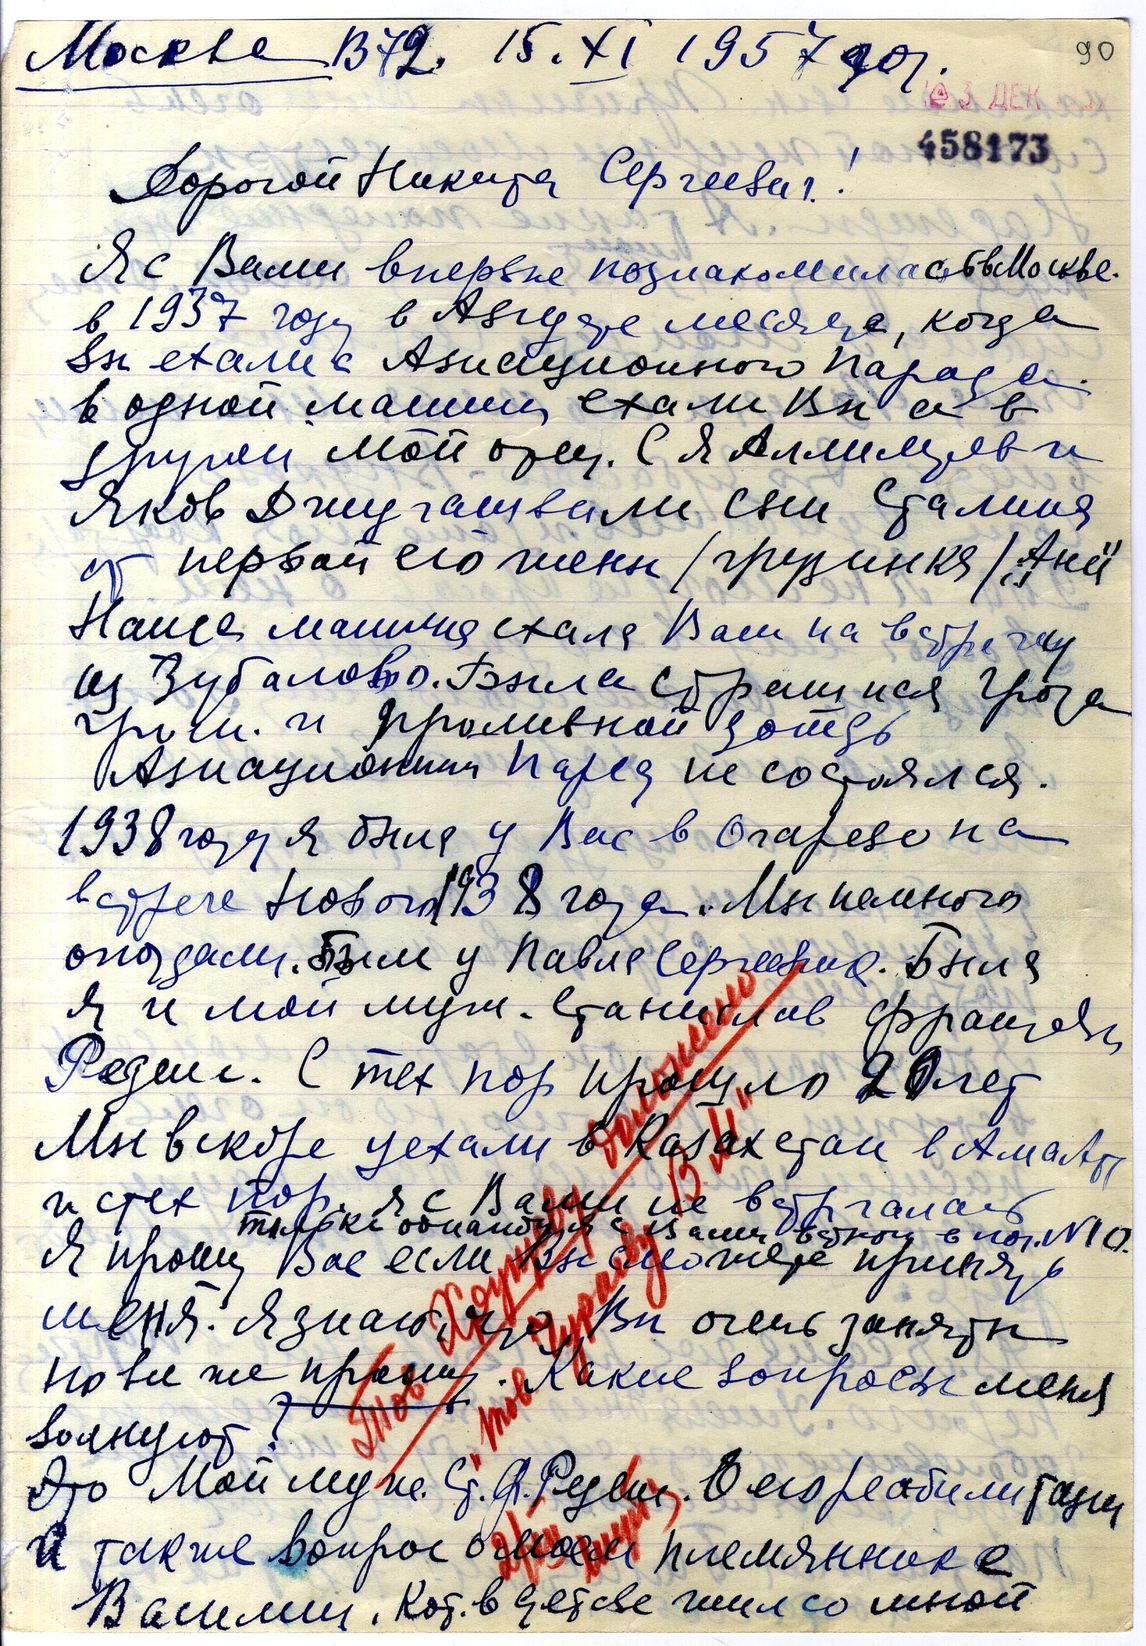 Москва В72. 15.XI 1957 год.
90
3 ДЕК
458173
Дорогой Никита Сергеевич!
Я с Вами впервые познакомилась в Москве.
в 1937 году в Августе месяце, когда
Вы ехали с Авиационного Парада.
в одной машине ехали Вы а в
другой мой отец. С Я Аллилуев и
Яков Джугашвили сын Сталина
от первой его жены /грузинка/
Наша машина ехала Вам на встречу
из Зубалово. Была страшная гроза
гром. и проливной дождь
Авиационный Парад не состоялся.
1938 году я была у Вас в Огарево на
встрече Нового 1938 года. Мы немного
опоздали. Были у Павла Сергеевича. Была
я и мой муж. Станислав Францевич
Реденс. С тех пор прошло 20 лет
Мы вскоре уехали в Казахстан в Алма Ату
и с тех пор я с Вами не встречалась
только однажды я с Вами в пол. N10.
Я прошу Вас если Вы сможете принять
меня. Я знаю, что Вы очень заняты
но все же прошу. Какие вопросы меня
волнуют?
Это Мой муж. Ст. Ф. Реденс. О его реабилитации
и также вопрос о моем племяннике
Василии, кот. в детстве жил со мной
Тов Хрущеву доложено
тов Чураеву В.М"